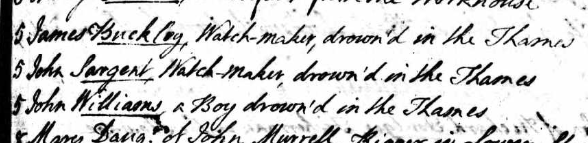 Workhouse
5 James Buckley, Watch-maker, drown'd in the Thames
5 John Sargent, Watch-maker, drown'd in the Thames
5 John Williams, a Boy drown'd in the Thames
Mary Daug.r of John Murrell